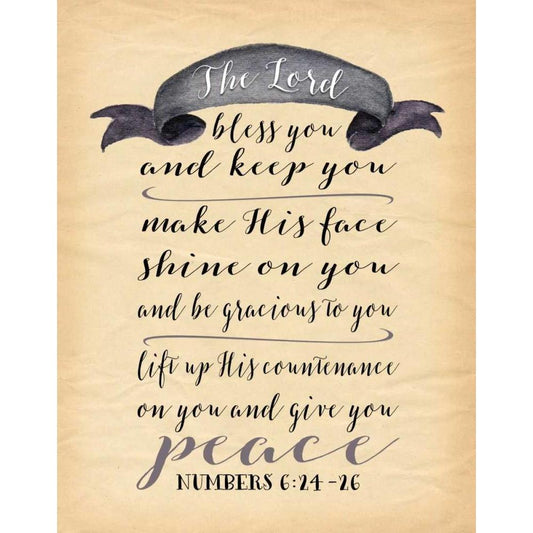 The Lord
bless you
and keep you
make His face
shine on you
and be gracious to you
lift up His countenance
on you and give you
peace
NUMBERS 6:24-26